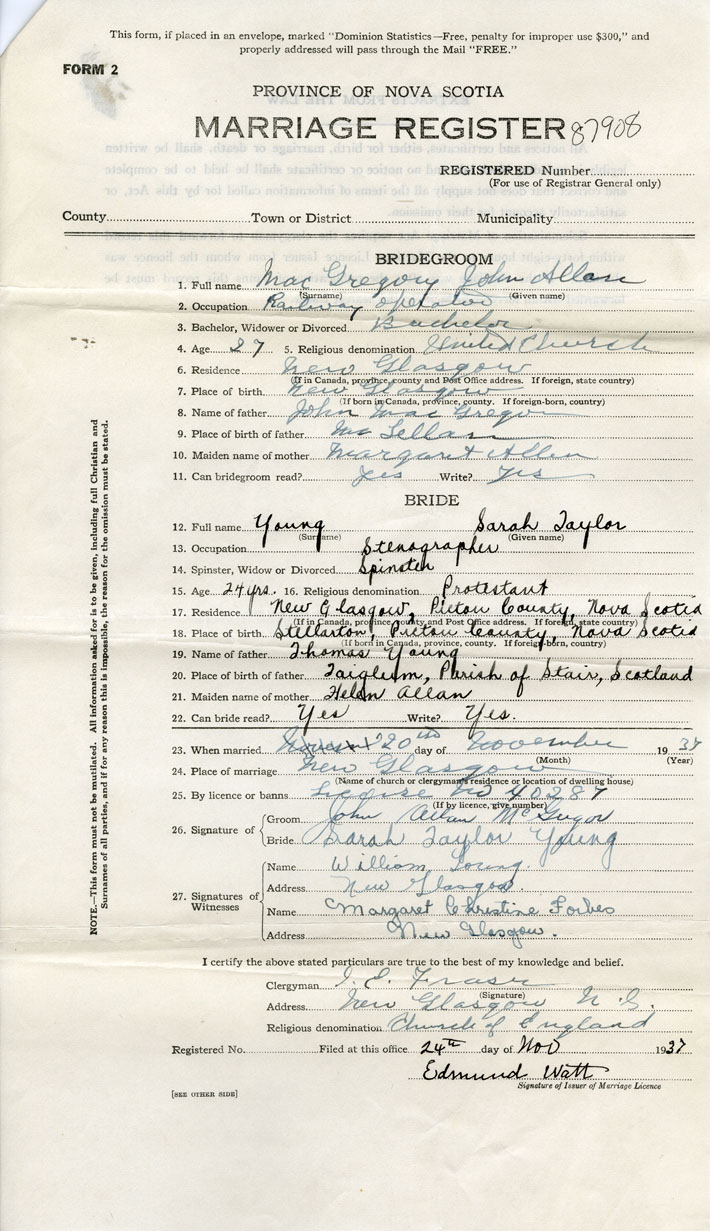 This form, if placed in an envelope, marked "Dominion Statistics—Free, penalty for improper use $300," and
properly addressed will pass through the Mail "FREE."
FORM 2
PROVINCE OF NOVA SCOTIA
MARRIAGE REGISTER 87908
REGISTERED Number
(For use of Registrar General only)
County Town or District Municipality
BRIDEGROOM
1. Full name Mac Gregory John Allan
(Surname) (Given name)
2. Occupation Railway operator
3. Bachelor, Widower or Divorced Bachelor
4. Age 27 5. Religious denomination United Church
6. Residence New Glasgow
(If in Canada, province, county and Post Office address. If foreign, state country)
7. Place of birth New Glasgow
(If born in Canada, province, county. If foreign-born, country)
8. Name of father John Mac Gregor
9. Place of birth of father Mc Lellan
10. Maiden name of mother Margaret Allen
11. Can bridegroom read? Yes Write? Yes
BRIDE
12. Full name Young Sarah Taylor
(Surname) (Given name)
13. Occupation Stenographer
14. Spinster, Widow or Divorced Spinster
15. Age 24 yrs. 16. Religious denomination Protestant
17. Residence New Glasgow, Pictou County, Nova Scotia
(If in Canada, province, county and Post Office address. If foreign, state country)
18. Place of birth Stellarton, Pictou County, Nova Scotia
(If born in Canada, province, county. If foreign-born, country)
19. Name of father Thomas Young
20. Place of birth of father Taiglum, Parish of Stair, Scotland
21. Maiden name of mother Helen Allan
22. Can bride read? Yes Write? Yes.
23. When married 20th day of November 1937
(Month) (Year)
24. Place of marriage New Glasgow
(Name of church or clergyman's residence or location of dwelling house)
25. By licence or banns Licence No 40287
(If by licence, give number)
26. Signature of
Groom John Allan McGregor
Bride Sarah Taylor Young
27. Signatures of Witnesses
Name William Young.
Address New Glasgow.
Name Margaret Christine Forbes
Address New Glasgow.
I certify the above stated particulars are true to the best of my knowledge and belief.
Clergyman J. E. Fraser
(Signature)
Address New Glasgow N.S.
Religious denomination Church of England
Registered No. Filed at this office 24th day of Nov 1937
Edmund Watt
Signature of Issuer of Marriage Licence
[SEE OTHER SIDE]
NOTE.—This form must not be mutilated. All information asked for is to be given, including full Christian and
Surnames of all parties, and if for any reason this is impossible, the reason for the omission must be stated.